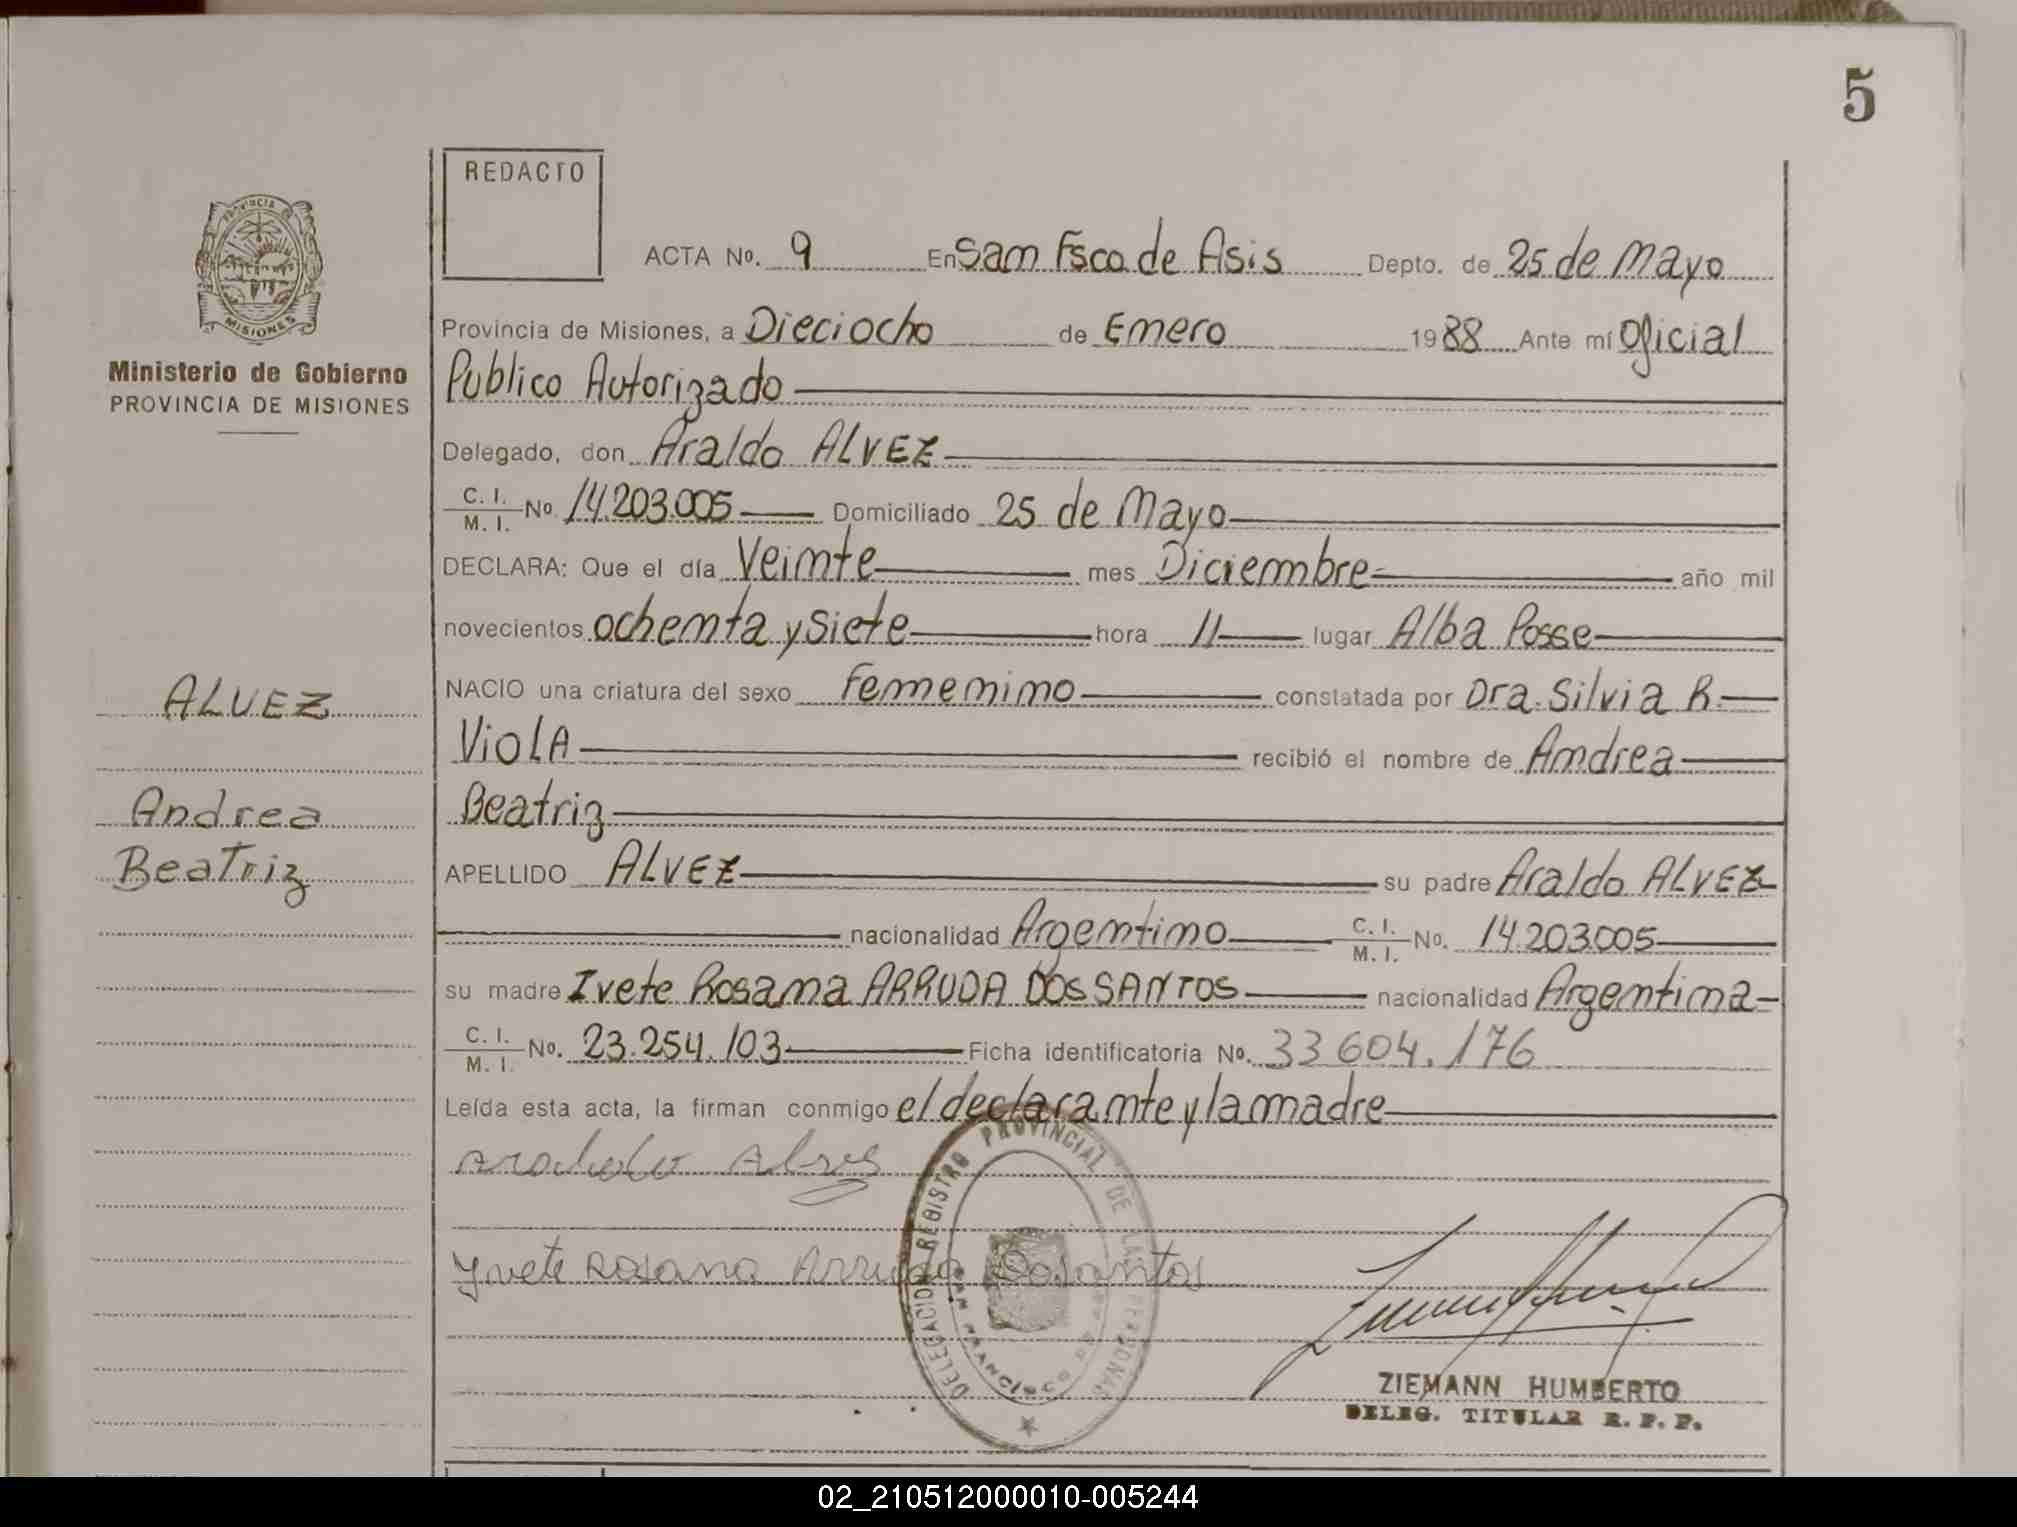 5
REDACTO
PROVINCIA DE
MISIONES
Ministerio de Gobierno
PROVINCIA DE MISIONES
ACTA No. 9 En Sam Fsco de Asis Depto. de 25 de Mayo
Provincia de Misiones, a Dieciocho de Emero 1988 Ante mí Oficial
Publico Autorizado
Delegado, don Araldo ALVEZ
C. I.
M. I. No. 14.203.005 Domiciliado 25 de Mayo
DECLARA: Que el día Veimte mes Diciembre año mil
novecientos ochemta y siete hora 11 lugar Alba Posse
NACIO una criatura del sexo Femenimo constatada por Dra. Silvia R.
Viola recibió el nombre de Amdrea
Beatriz
APELLIDO ALVEZ su padre Araldo ALVEZ
nacionalidad Argemtimo C. I.
M. I. No. 14.203.005
su madre Ivete Rosama ARRUDA DOS SANTOS nacionalidad Argemtima
C. I.
M. I. No. 23.254.103 Ficha identificatoria No. 33 604.176
Leída esta acta, la firman conmigo el declaramte y la madre
Yvete Rosana Arruda Dosantos
ALVEZ
Andrea
Beatriz
DELEGACION REGISTRO PROVINCIAL DE LAS PERSONAS
SAN FRANCISCO DE ASIS
ZIEMANN HUMBERTO
DELEG. TITULAR R. P. P.
02_210512000010-005244